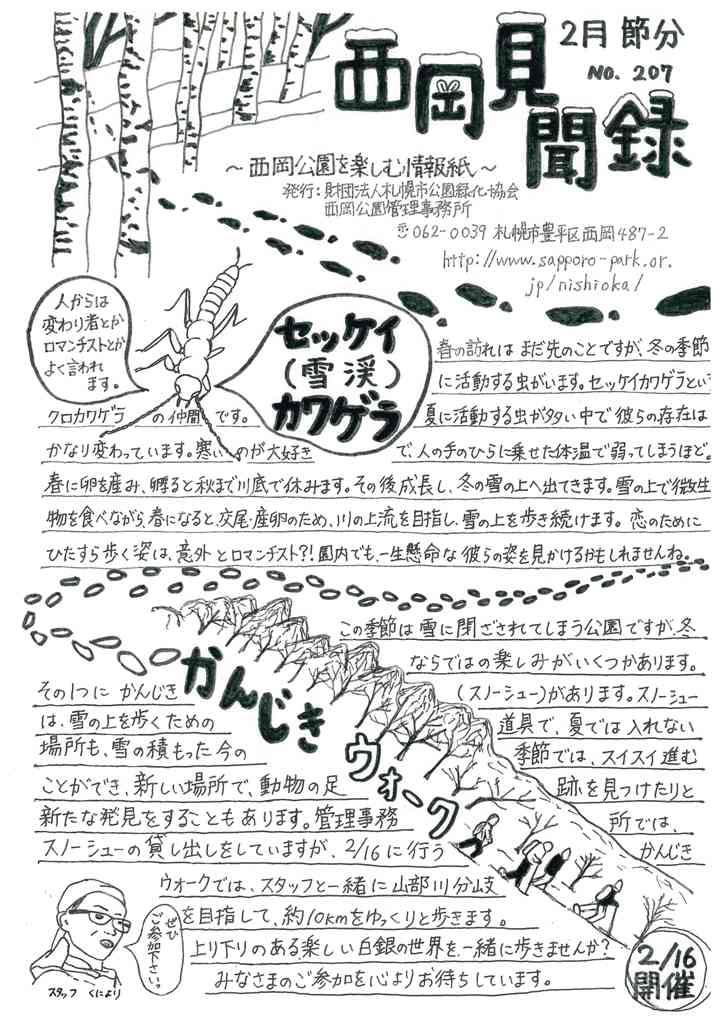 2月 節分
NO. 207
西岡見聞録
～西岡公園を楽しむ情報紙～
発行：財団法人札幌市公園緑化協会
西岡公園管理事務所
〒062-0039 札幌市豊平区西岡487-2
http://www.sapporo-park.or.
jp/nishioka/
人からは
変わり者とか
ロマンチストとか
よく言われ
ます。
セッケイ
(雪渓)
カワゲラ
春の訪れはまだ先のことですが、冬の季節
に活動する虫がいます。セッケイカワゲラという
クロカワゲラ の仲間です。 夏に活動する虫が多い中で彼らの存在は
かなり変わっています。寒いのが大好き で、人の手のひらに乗せた体温で弱ってしまうほど。
春に卵を産み、孵ると秋まで川底で休みます。その後成長し、冬の雪の上へ出てきます。雪の上で微生
物を食べながら、春になると、交尾・産卵のため、川の上流を目指し、雪の上を歩き続けます。恋のために
ひたすら歩く姿は、意外とロマンチスト?!園内でも、一生懸命な彼らの姿を見かけるかもしれませんね。
かんじき
ウォーク
この季節は雪に閉ざされてしまう公園ですが、冬
ならではの楽しみがいくつかあります。
その1つに かんじき (スノーシュー)があります。スノーシュー
は、雪の上を歩くための 道具で、夏では入れない
場所も、雪の積もった今の 季節では、スイスイ進む
ことができ、新しい場所で、動物の足 跡を見つけたりと
新たな発見をすることもあります。管理事務 所では、
スノーシューの貸し出しをしていますが、2/16に行う かんじき
ウォークでは、スタッフと一緒に山部川分岐
を目指して、約10kmをゆっくりと歩きます。
上り下りのある楽しい白銀の世界を、一緒に歩きませんか?
みなさまのご参加を心よりお待ちしています。
ぜひ
ご参加下さい。
スタッフ くにより
2/16
開催